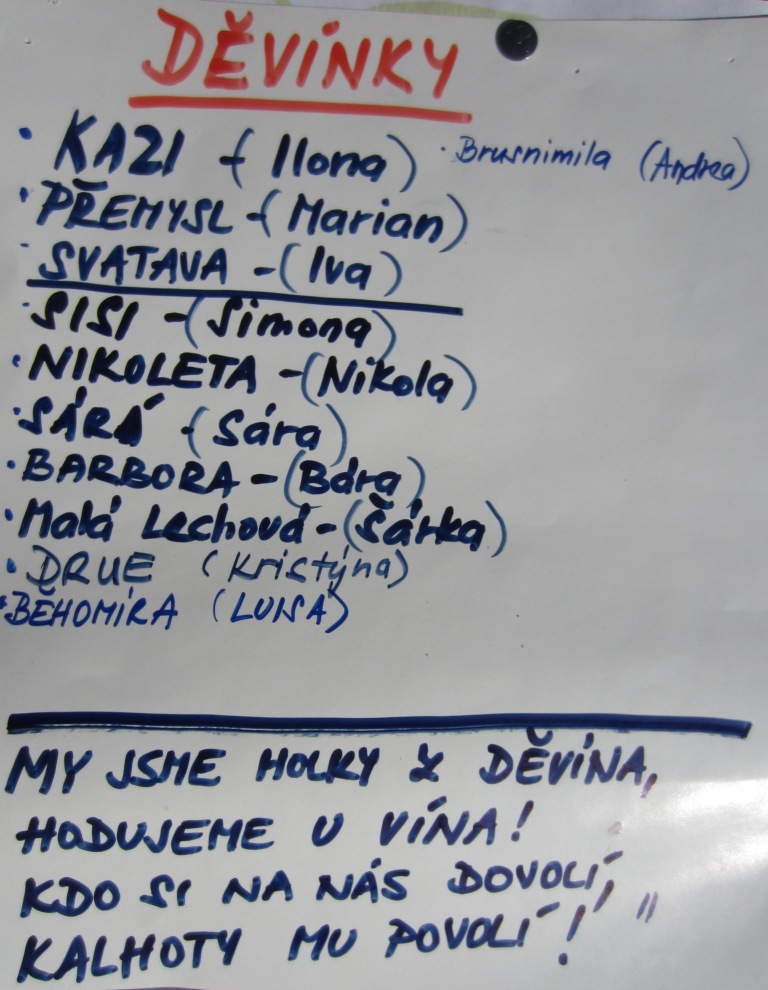 DĚVÍNKY
• KAZI - (Ilona) • Brusnimila (Andrea)
• PŘEMYSL - (Marian)
• SVATAVA - (Iva)
• SISI - (Simona)
• NIKOLETA - (Nikola)
• SÁRÁ - (Sára)
• BARBORA - (Bára)
• Malá Lechová - (Šárka)
• DRUE (Kristýna)
• BĚHOMÍRA (LUISA)
MY JSME HOLKY Z DĚVÍNA,
HODUJEME U VÍNA!
KDO SI NA NÁS DOVOLÍ,
KALHOTY MU POVOLÍ! "